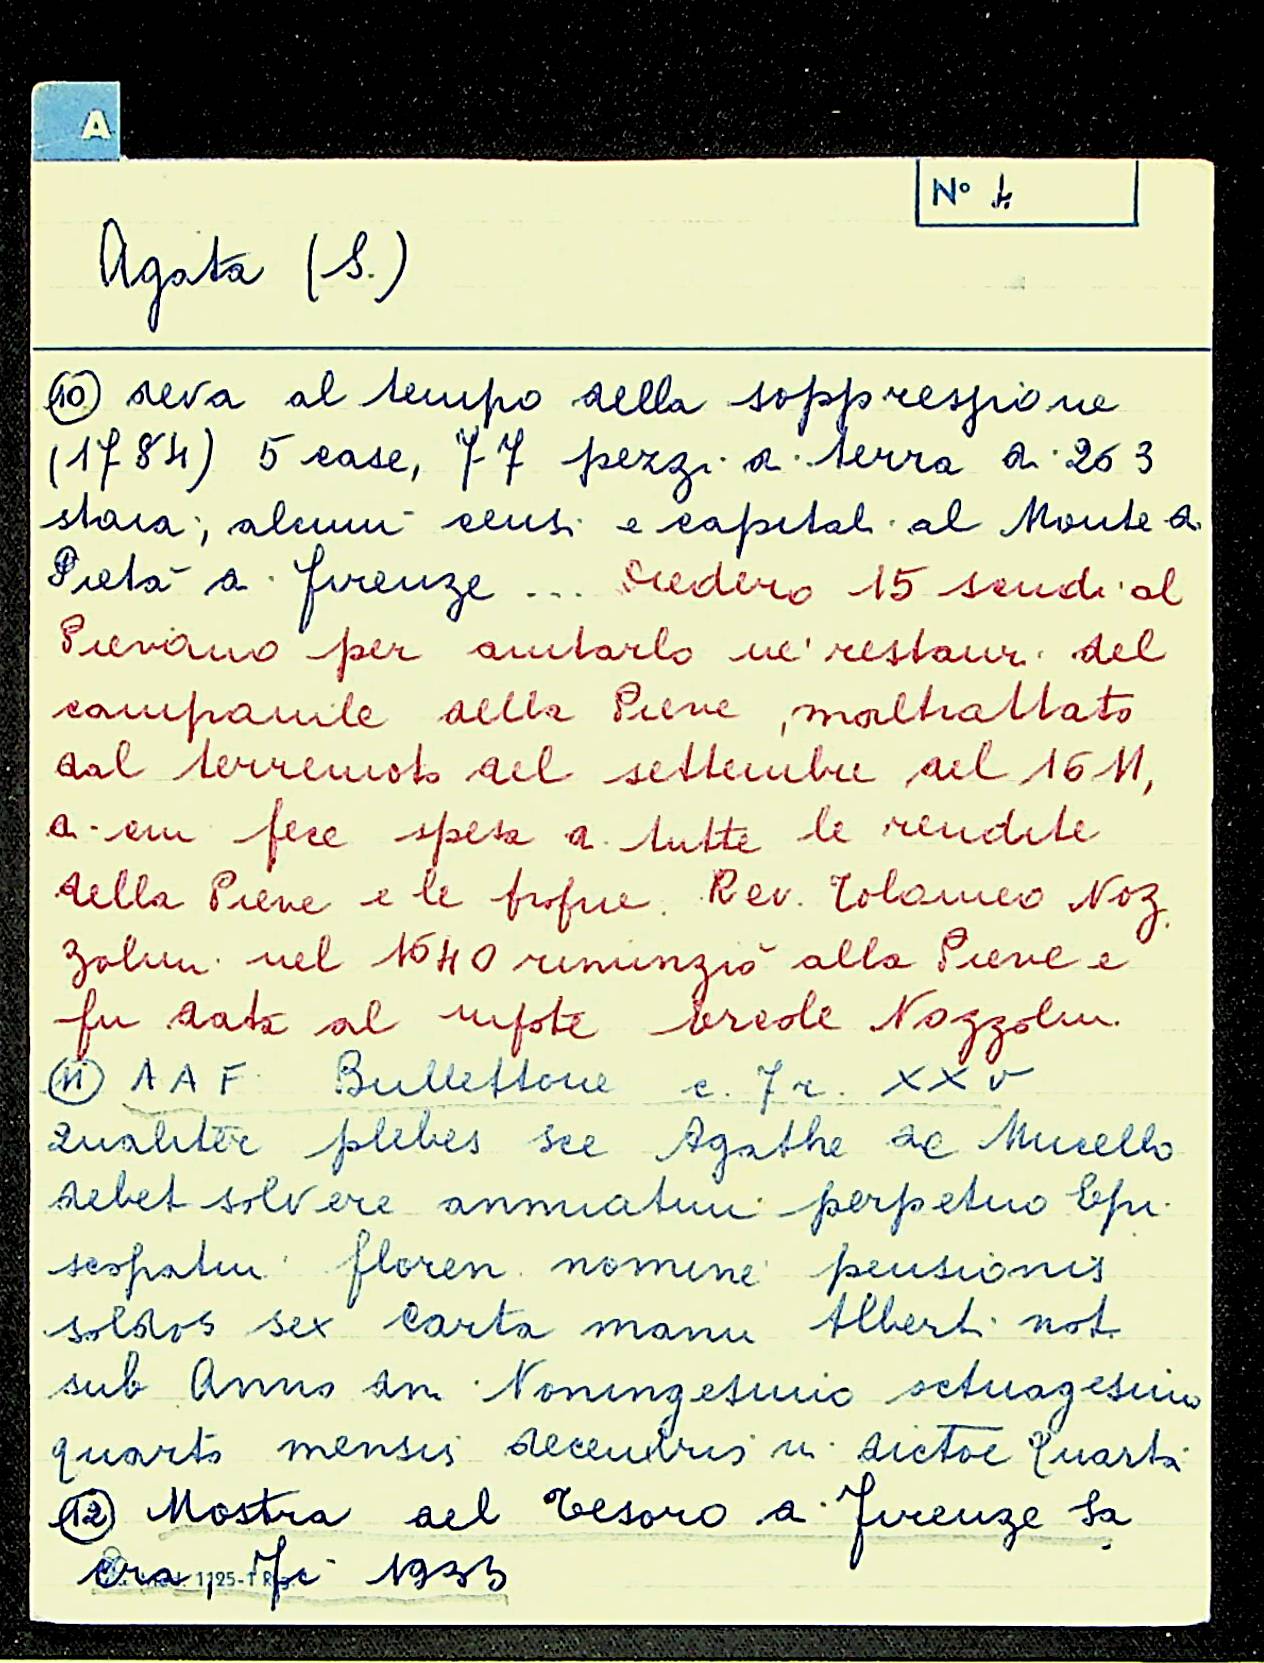 A
Nº 4.
Agata (S.)
(10) deva al tempo della soppressione
(1784) 5 case, 77 pezzi di terra di 263
staia; alcuni censi e capitali al Monte di
Pietà di Firenze ... Diedero 15 scudi al
Pievano per aiutarlo ne' restauri del
campanile della Pieve, maltrattato
dal terremoto del settembre del 1611,
di cui fece spese di tutte le rendite
della Pieve e le Rev. Tolomeo Noz
zolini nel 1640 rinunziò alla Pieve e
fu data al nipote Ercole Nozzolini.
(11) AAF. Bullettone c. 7 r. XXV
Qualiter plebes sce Agathe de Mucello
debet solvere annuatim perpetuo Epi
scopatui floren. nomine pensionis
soldos sex carta manu Alberti not.
sub Anno dni. Noningesimo octuagesimo
quarto mensis decembris in dictoe Quarta
(12) Mostra del Tesoro di Firenze Sa
cra, Fi 1933
1125-1